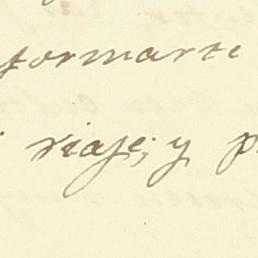 formarte
viaje; y p